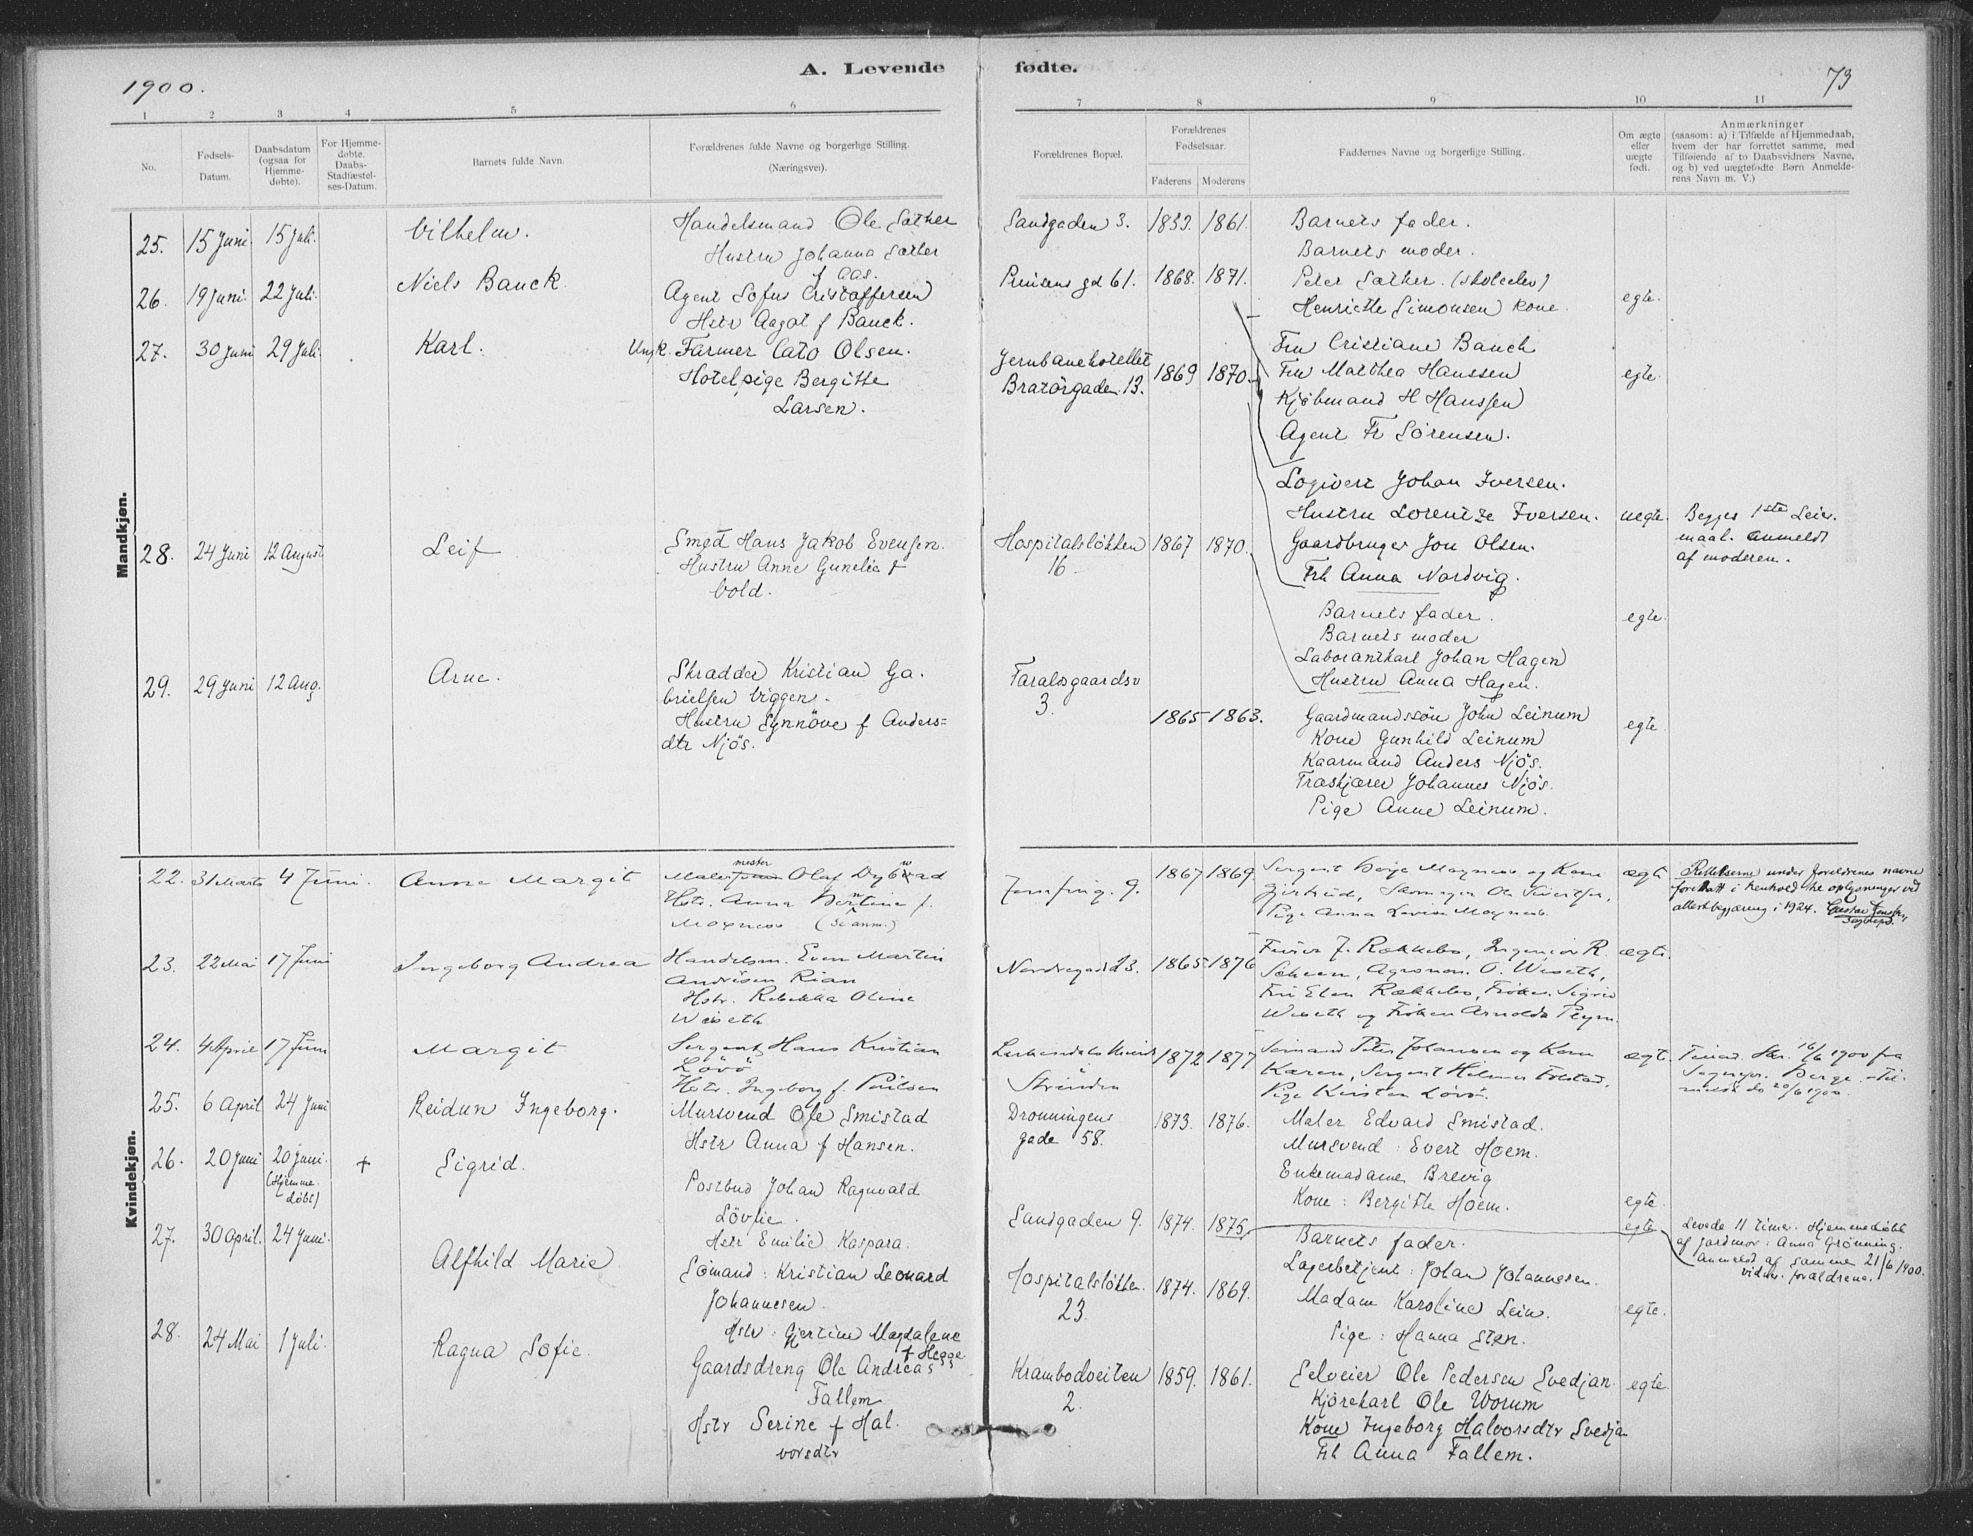 1900.
A. Levende fødte.
73
1 2 3 4 5 6 7 8 9 10 11
No.
Fødsels-
Datum.
Daabsdatum
(ogsaa for
Hjemme-
døbte).
For Hjemme-
døbte.
Daabs-
Stadfæstel-
ses-Datum.
Barnets fulde Navn.
Forældrenes fulde Navne og borgerlige Stilling.
(Næringsvei).
Forældrenes Bopæl.
Forældrenes
Fødselsaar.
Faderens Moderens
Faddernes Navne og borgerlige Stilling.
Om ægte
eller
uægte
født.
Anmærkninger
(saasom: a) i Tilfælde af Hjemmedaab,
hvem der har forrettet samme, med
Tilføiende af to Daabsvidners Navne,
og b) ved uægtefødte Børn Anmelde-
rens Navn m. V.)
Mandkjøn.
25. 15 Juni 15 Juli. Vilhelm.
Handelsmand Ole Sæther
Hustru Johanna Sæther
f Aas.
Sandgaden 3. 1853. 1861.
Barnets fader.
Barnets moder.
Peter Sæther. (skoleelev)
Henriette Simonsen kone.
egte.
26. 19 Juni. 22 Juli. Niels Bauck.
Agent Sofus Cristoffersen
Hstr Aagot f Bauck.
gd 61. 1868. 1871.
Fru Cristiane Bauck
Fru Marthea Hanssen
Kjøbmand H Hanssen
Agent Fr Sørensen.
egte.
27. 30 Juni 29 Juli. Karl.
Ungk. Farmer Cato Olsen.
Hotelpige Bergitte
Larsen.
Jernbanehotellet
Bratørgaden 13. 1869 1870.
Logivert Johan Iversen.
Hustru Lorentze Iversen.
Gaardbruger Jon Olsen.
Frk Anna Nordvig.
uegte. Begges 1ste Leier-
maal. Anmeldt
af moderen.
28. 24 Juni 12 August Leif
Smed Hans Jakob Evensen.
Hustru Anne Gunelie f
Vold.
Hospitalsløkken
16. 1867 1870.
Barnets fader.
Barnets moder
Laborantkarl Johan Hagen
Hustru Anna Hagen.
egte.
29. 29 Juni 12 Aug. Arne.
Skrædder Kristian Ga-
brielsen Viggen.
Hustru Synnöve f Anders=
dtr Njös.
3.
1865 1863.
Gaardmandssön John Leinum
Kone Gunhild Leinum
Kaarmand Anders Njös.
Træskjærer Johannes Njös.
Pige Anne Leinum.
egte.
Kvindekjøn.
22. 31 Marts 4 Juni. Anne Margit
mester
Maler Olaf Dybwad
Hstr. Anna Bertine f.
Moxness
Jomfrug. 9. 1867 1869
Sergent Moxness og Kone
Gjertrud, Ole
Pige Anna Lovise Moxness.
ægte Rettelserne under forældrenes navne
foretatt i henhold til oplysninger ved
attestbegjæring i 1924.
23. 22 Mai 17 Juni Ingeborg Andrea
Handelsm. Even Martin
Andrésen Rian
Hstr. Rebekka Oline
Wiseth
Nordregad 23. 1865 1876
J. Rækkebo, Ingeniör R.
Agronom O. Wiseth,
Fru Elen Rækkebo, Fröken Sigrid
Wiseth og Fröken Arnolda
ægte.
24. 4 April 17 Juni Margit
Sergent Hans Kristian
Lövö
Hstr. Ingeborg f. Paulsen
Strinden 1872 1877
Sömand Peter Johansen og Kone
Karen, Sergent
Pige Kirsten Lövö.
ægte. 16/6 1900 fra
20/6 1900.
25. 6 April 24 Juni Reidun Ingeborg.
Mursvend Ole Smistad
Hstr Anna f Hansen.
Dronningens
gade 58. 1873. 1876.
Maler Edvard Smistad.
Mursvend: Evert Hoem.
Enkemadame Brevig
Kone: Bergitte Hoem.
egte.
26. 20 Juni 20 Juni.
(Hjemme-
døbt) + Sigrid.
Postbud Johan Ragnvald
Lövlie.
Hstr Emilie Kaspara.
Sandgaden 9. 1874. 1875.
egte Levede 11 timer. Hjemmedøbt
af jordmor: Anna Grønning.
Anmeldt af samme 21/6 1900.
vidner forældrene.
27. 30 April. 24 Juni. Alfhild Marie
Sömand: Kristian Leonard
Johannesen.
Hstr: Gjertine Magdalene
f Hegge
Hospitalsløkken.
23. 1874. 1869.
Barnets fader.
Lagerbetjent: Johan Johannesen.
Madam Karoline Lein.
Pige: Hanna Sten.
egte.
28. 24 Mai 1 Juli. Ragna Sofie.
Gaardsdreng Ole Andreas
Fallem
Hstr Serine f Hal-
vorsdtr
Krambodveiten
2. 1859. 1861.
Selveier Ole Pedersen Svedjan.
Kjørekarl Ole Worum
Kone Ingeborg Halvorsdtr Svedjan
Frk Anna Fallem.
egte